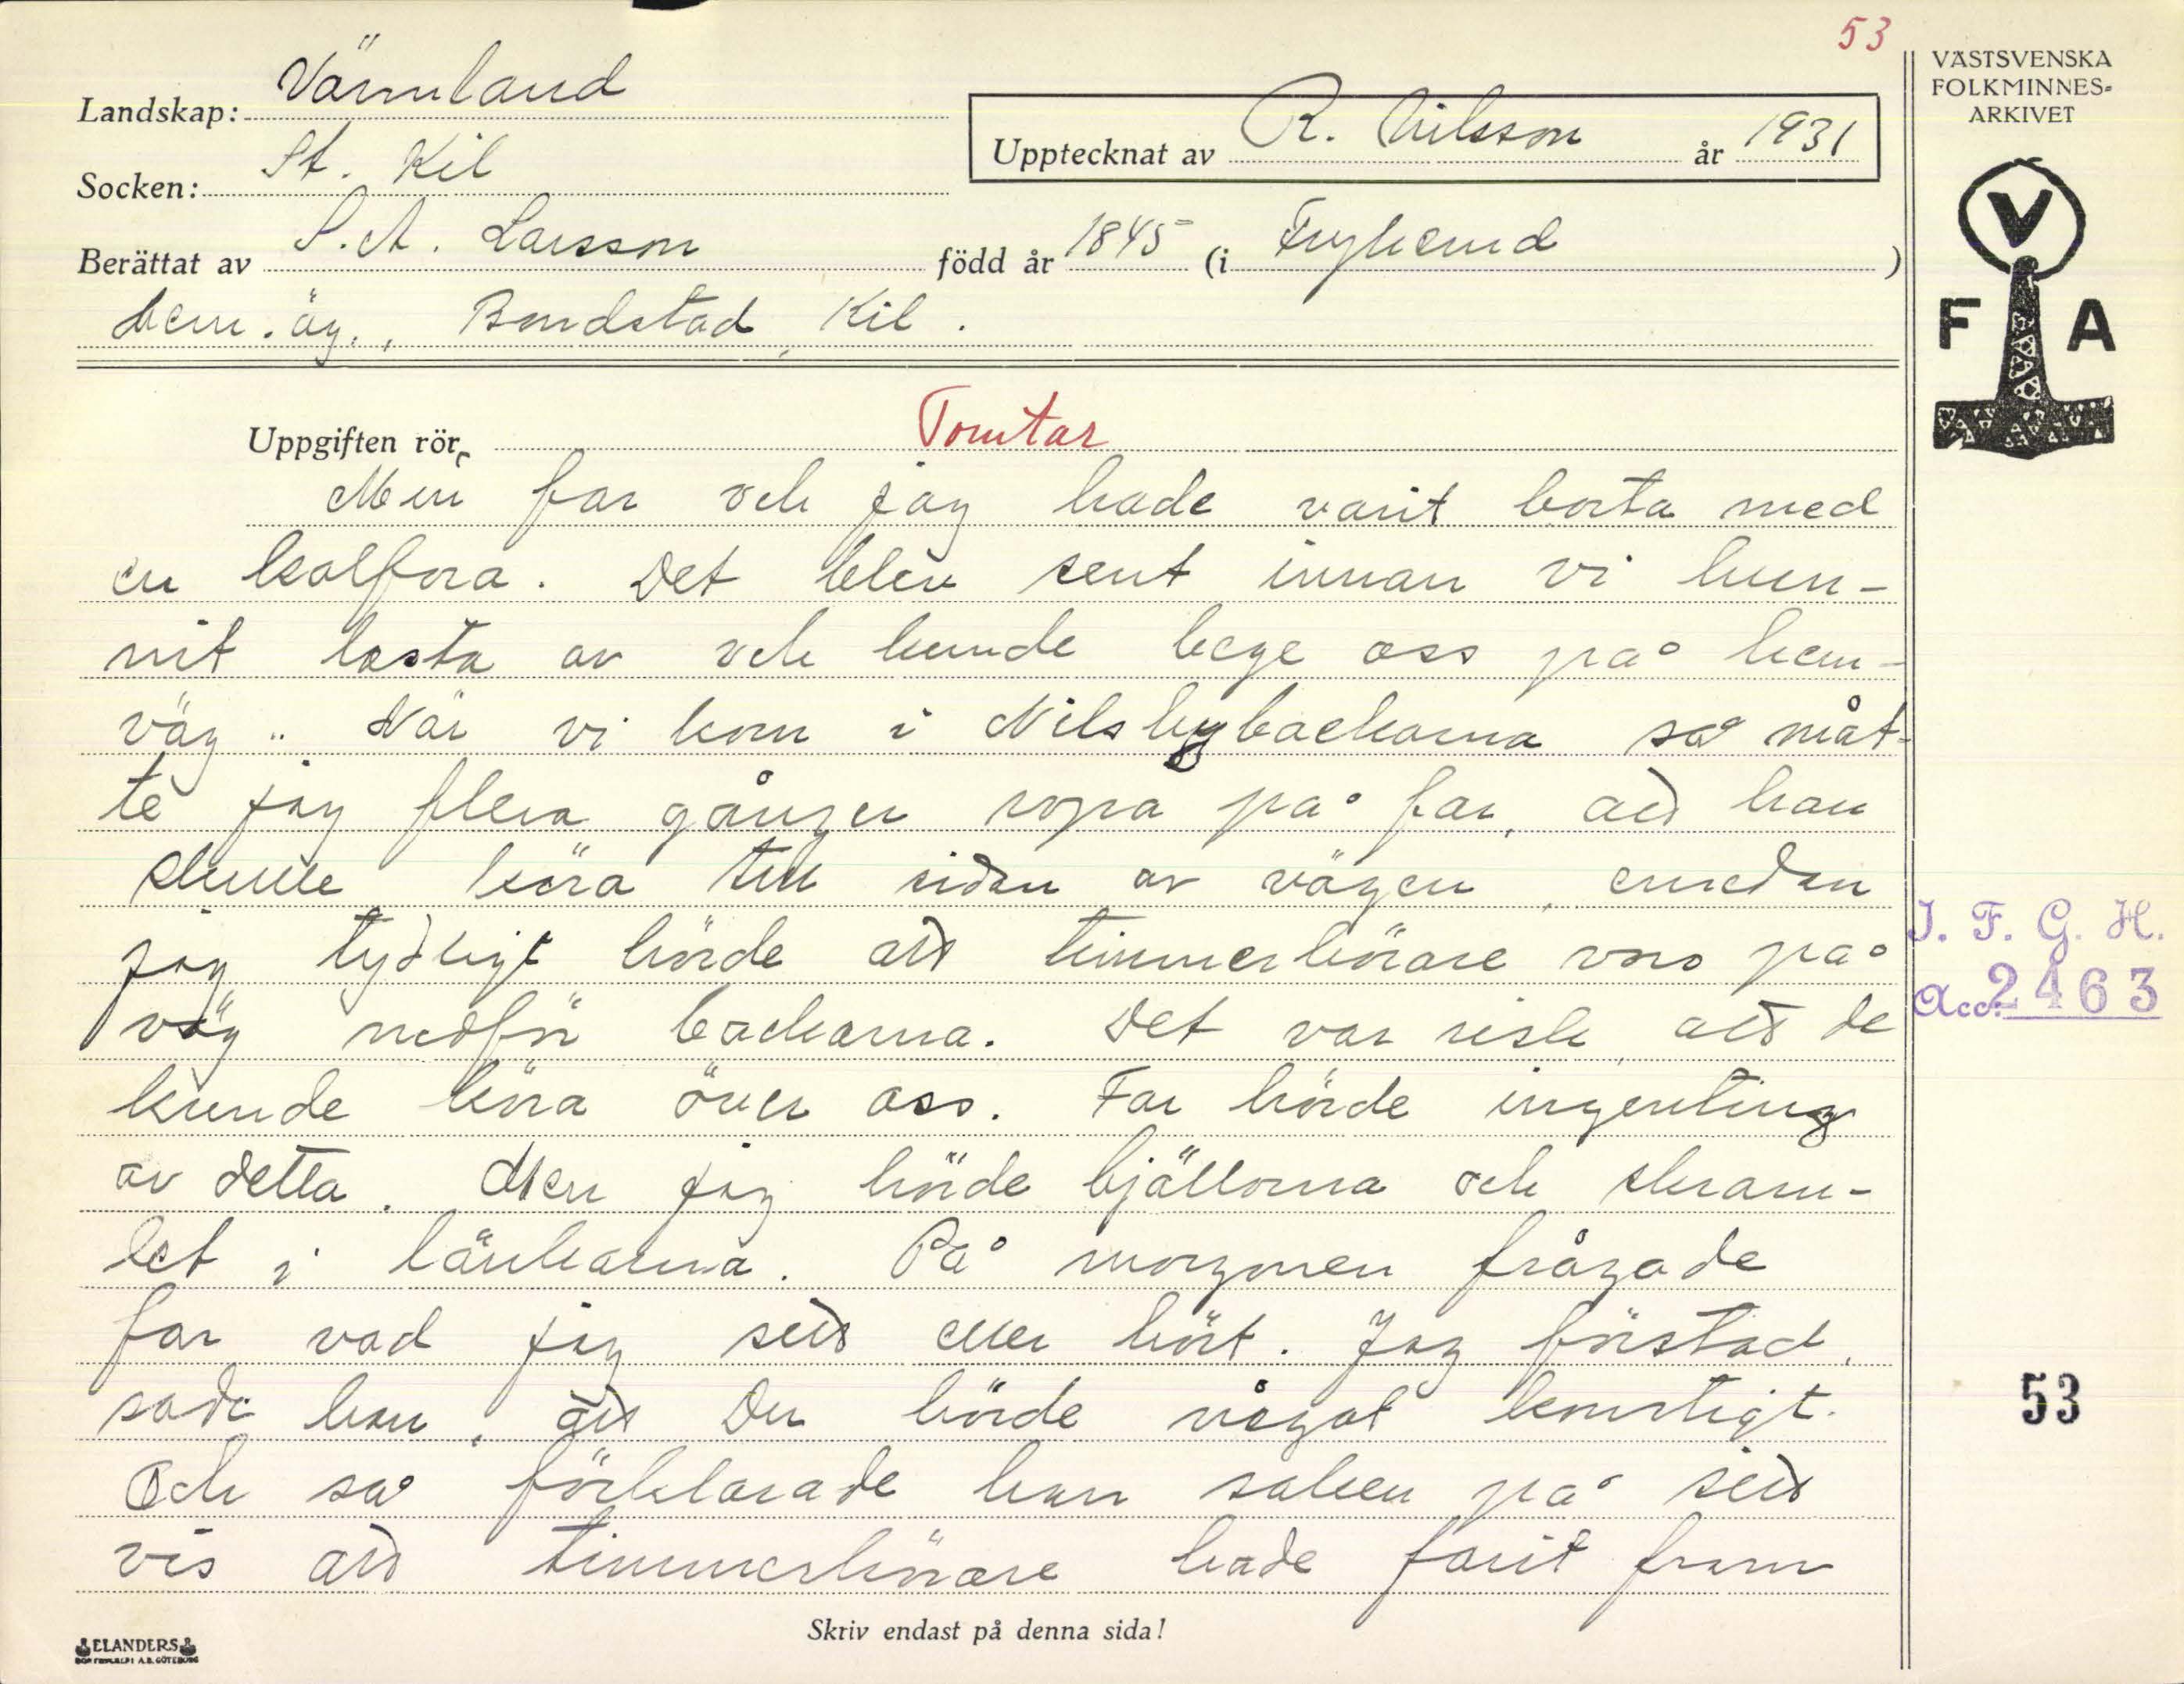 53
VÄSTSVENSKA
FOLKMINNES-
ARKIVET
Landskap: Värmland
Upptecknat av R. Nilsson år 1931
Socken: St. Kil
Berättat av S. A. Larsson född år 1845 (i Frykerud )
hem.äg., Bondstad, Kil.
V
F A
Uppgiften rör Tomtar
Min far och jag hade varit borta med
en kolfora. Det blev sent innan vi hun-
nit lasta av och kunde bege oss på hem-
väg. När vi kom i Nilsbybackarna så måt-
te jag flera gånger ropa på far, att han
skulle köra till sidan av vägen, emedan
jag tydligt hörde att timmerkörare voro på
väg nedför backarna. Det var risk, att de
kunde köra över oss. Far hörde ingenting
av detta. Men jag hörde bjällorna och skram-
let i länkarna. På morgonen frågade
far vad jag sett eller hört. Jag förstod,
sade han, att Du hörde något konstigt.
Och så förklarade han saken på sätt
vis att timmerkörare hade farit fram
I. F. G. H.
Acc. 2463
53
Skriv endast på denna sida!
ELANDERS